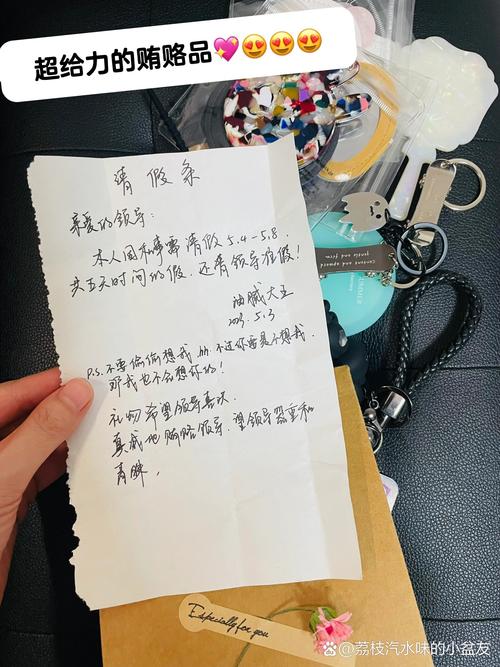 超给力的贿赂品💖😍😍😍
请假条
亲爱的领导：
本人因私事需请假5.4-5.8.
共五天时间的假.还请领导准假!
油腻大王
2023.5.3
P.S.不要偷偷想我.hh.不过你要是不想我.
那我也不会想你的!
礼物希望领导喜欢.
真诚地贿赂领导.望领导器重和
青睐.
Especially for you
荔枝汽水味的小盆友